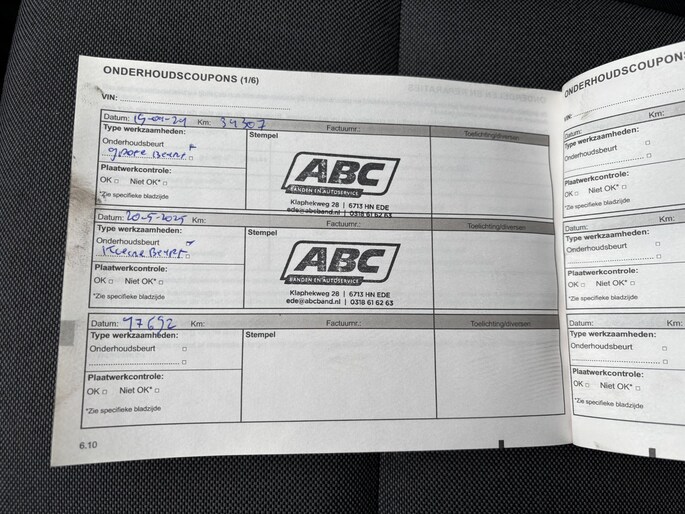 ONDERHOUDSCOUPONS (1/6)
VIN:
Datum: 15-01-24 Km: 34307 Factuurnr.: Toelichting/diversen:
Type werkzaamheden: Stempel
Onderhoudsbeurt
grote Beurt
Plaatwerkcontrole:
OK □ Niet OK* □
*Zie specifieke bladzijde
ABC
BANDEN EN AUTOSERVICE
Klaphekweg 28 | 6713 HN EDE
ede@abcband.nl | 0318 61 62 63
Datum: 20-5-2025 Km: Factuurnr.: Toelichting/diversen:
Type werkzaamheden: Stempel
Onderhoudsbeurt
Kleine Beurt
Plaatwerkcontrole:
OK □ Niet OK* □
*Zie specifieke bladzijde
ABC
BANDEN EN AUTOSERVICE
Klaphekweg 28 | 6713 HN EDE
ede@abcband.nl | 0318 61 62 63
Datum: 47692 Km: Factuurnr.: Toelichting/diversen:
Type werkzaamheden: Stempel
Onderhoudsbeurt □
Plaatwerkcontrole:
OK □ Niet OK* □
*Zie specifieke bladzijde
6.10
ONDERHOUDSCOUPONS
VIN:
Datum: Km:
Type werkzaamheden:
Onderhoudsbeurt □
Plaatwerkcontrole:
OK □ Niet OK* □
*Zie specifieke bladzijde
Datum: Km:
Type werkzaamheden:
Onderhoudsbeurt □
Plaatwerkcontrole:
OK □ Niet OK* □
*Zie specifieke bladzijde
Datum: Km:
Type werkzaamheden:
Onderhoudsbeurt □
Plaatwerkcontrole:
OK □ Niet OK* □
*Zie specifieke bladzijde